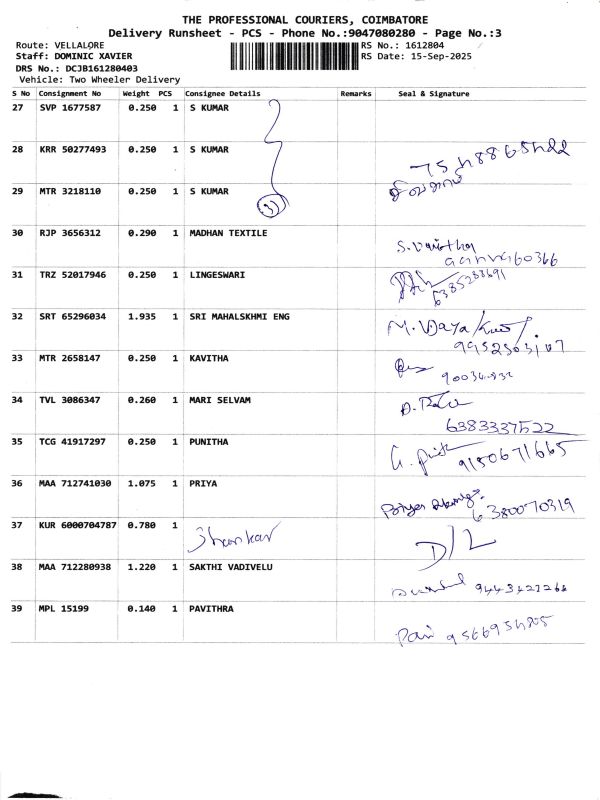 THE PROFESSIONAL COURIERS, COIMBATORE
Delivery Runsheet - PCS - Phone No.:9047080280 - Page No.:3
Route: VELLALORE RS No.: 1612804
Staff: DOMINIC XAVIER RS Date: 15-Sep-2025
DRS No.: DCJB161280403
Vehicle: Two Wheeler Delivery
S No Consignment No Weight PCS Consignee Details Remarks Seal & Signature
27 SVP 1677587 0.250 1 S KUMAR
28 KRR 50277493 0.250 1 S KUMAR
29 MTR 3218110 0.250 1 S KUMAR
3
30 RJP 3656312 0.290 1 MADHAN TEXTILE
31 TRZ 52017946 0.250 1 LINGESWARI
6385233691
32 SRT 65296034 1.935 1 SRI MAHALSKHMI ENG
33 MTR 2658147 0.250 1 KAVITHA
34 TVL 3086347 0.260 1 MARI SELVAM
6383337522
35 TCG 41917297 0.250 1 PUNITHA
9150671665
36 MAA 712741030 1.075 1 PRIYA
6380070319
37 KUR 6000704787 0.780 1 Shankar D/L
38 MAA 712280938 1.220 1 SAKTHI VADIVELU
39 MPL 15199 0.140 1 PAVITHRA